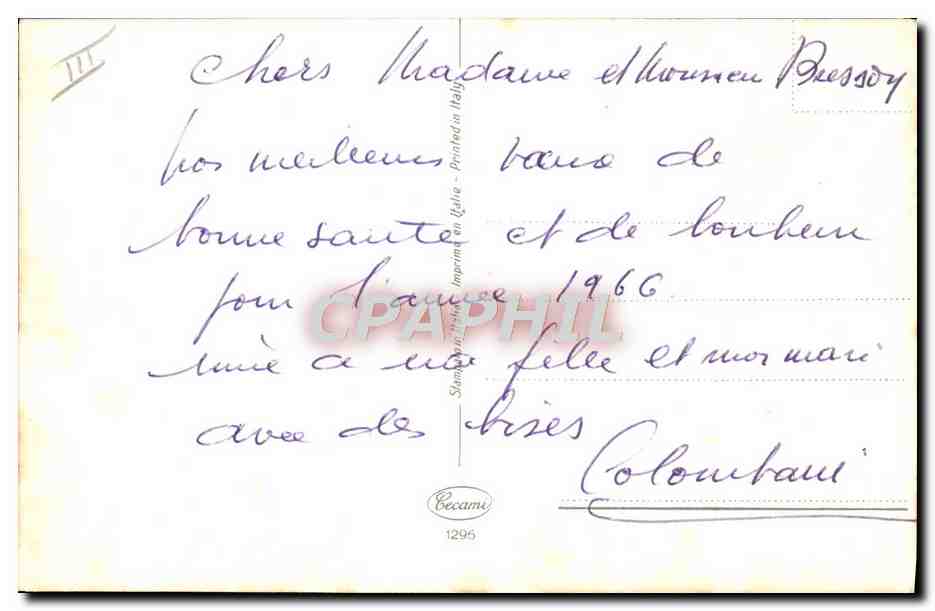 III
Chers Madame et Monsieur Bresson
nos meilleurs vœux de
bonne santé et de bonheur
pour l'année 1966
à ma fille et mon mari
avec des bises
Colombani
Stampato in Italia - Imprimé en Italie - Printed in Italy
CPAPHIL
Cecami
1295